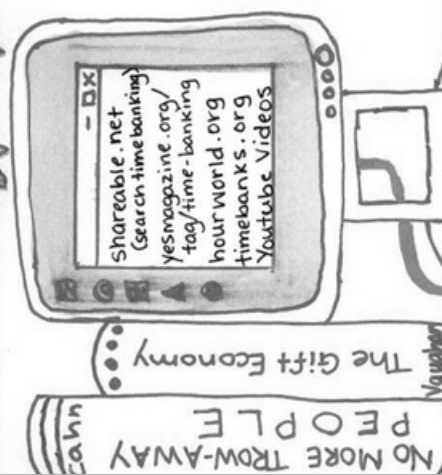 - □ X
shareable.net
(search timebanking)
yesmagazine.org/
tag/time-banking
hourworld.org
timebanks.org
Youtube Videos
The Gift Economy
Vaughan
NO MORE TROW-AWAY
PEOPLE
Cahn